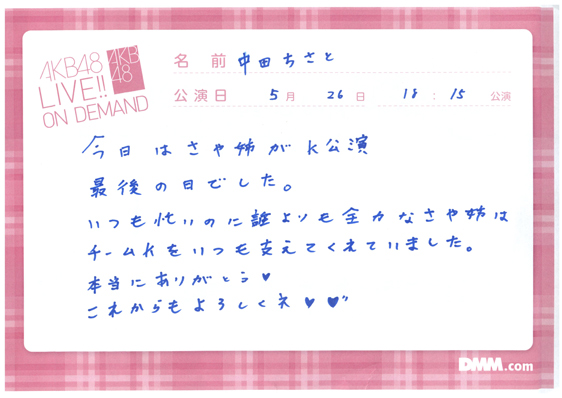 AKB48
LIVE!!
ON DEMAND
AKB
48
名 前 中田ちさと
公演日 5月 26日 18:15 公演
今日はさや姉がK公演
最後の日でした。
いつも忙いのに誰よりも全力なさや姉は
チームKをいつも支えてくえていました。
本当にありがとう♥
これからもよろしくえ♥♥"
DMM.com